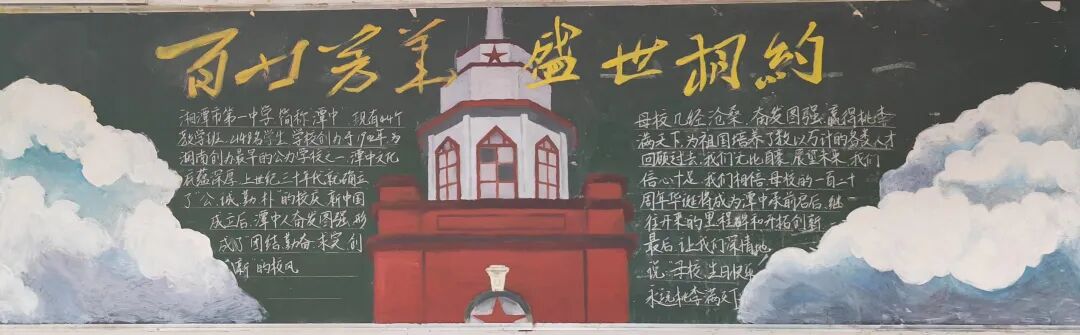 百廿芳华 盛世相约
湘潭市第一中学,简称"潭中",现有44个
教学班,2449名学生,学校创办于1902年,为
湖南创办最早的公办学校之一,潭中文化
底蕴深厚,上世纪三十年代就确立
了"公、诚、勤、朴"的校训,新中国
成立后,潭中人奋发图强,形
成了"团结、勤奋、求实、创
新"的校风
母校几经沧桑,奋发图强,赢得桃李
满天下,为祖国培养了数以万计的各类人才
回顾过去,我们无比自豪,展望未来,我们
信心十足,我们相信,母校的一百二十
周年华诞将成为潭中承前启后、继
往开来的里程碑和开拓创新
最后,让我们深情地
说:"母校,生日快乐
永远桃李满天下